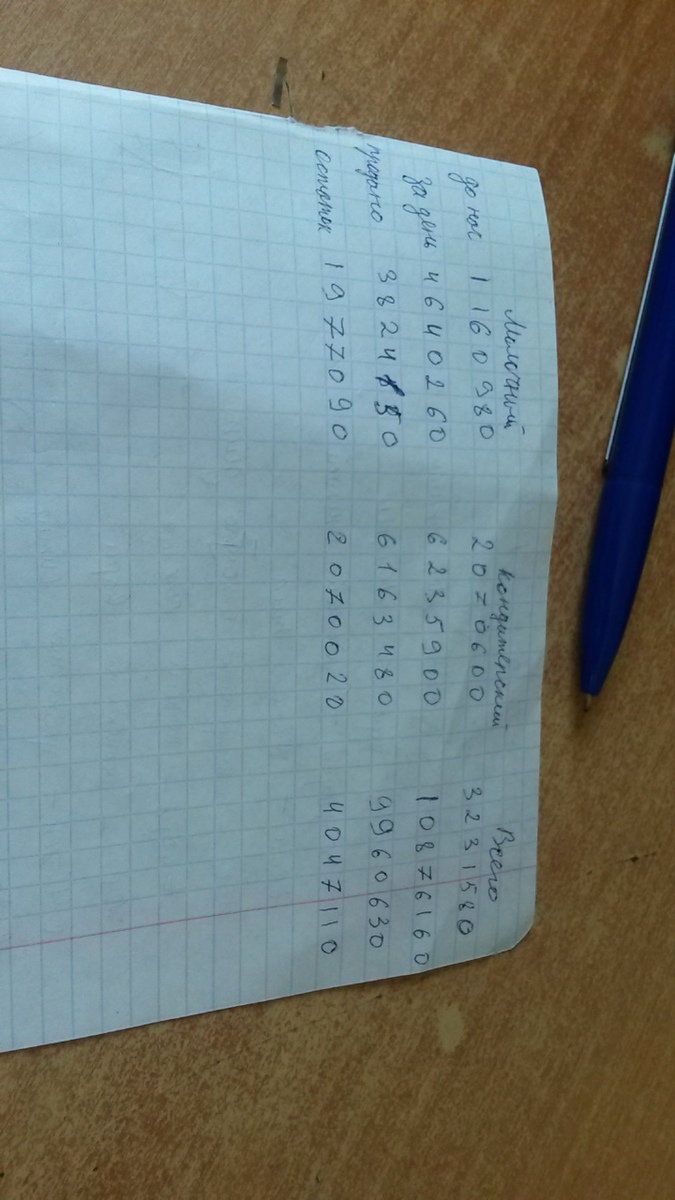 Молочный кондитерский Всего
до нас 1160980 2070600 3231580
за день 4640260 6235900 10876160
продано 3824150 6163480 9960630
остаток 1977090 2070020 4047110